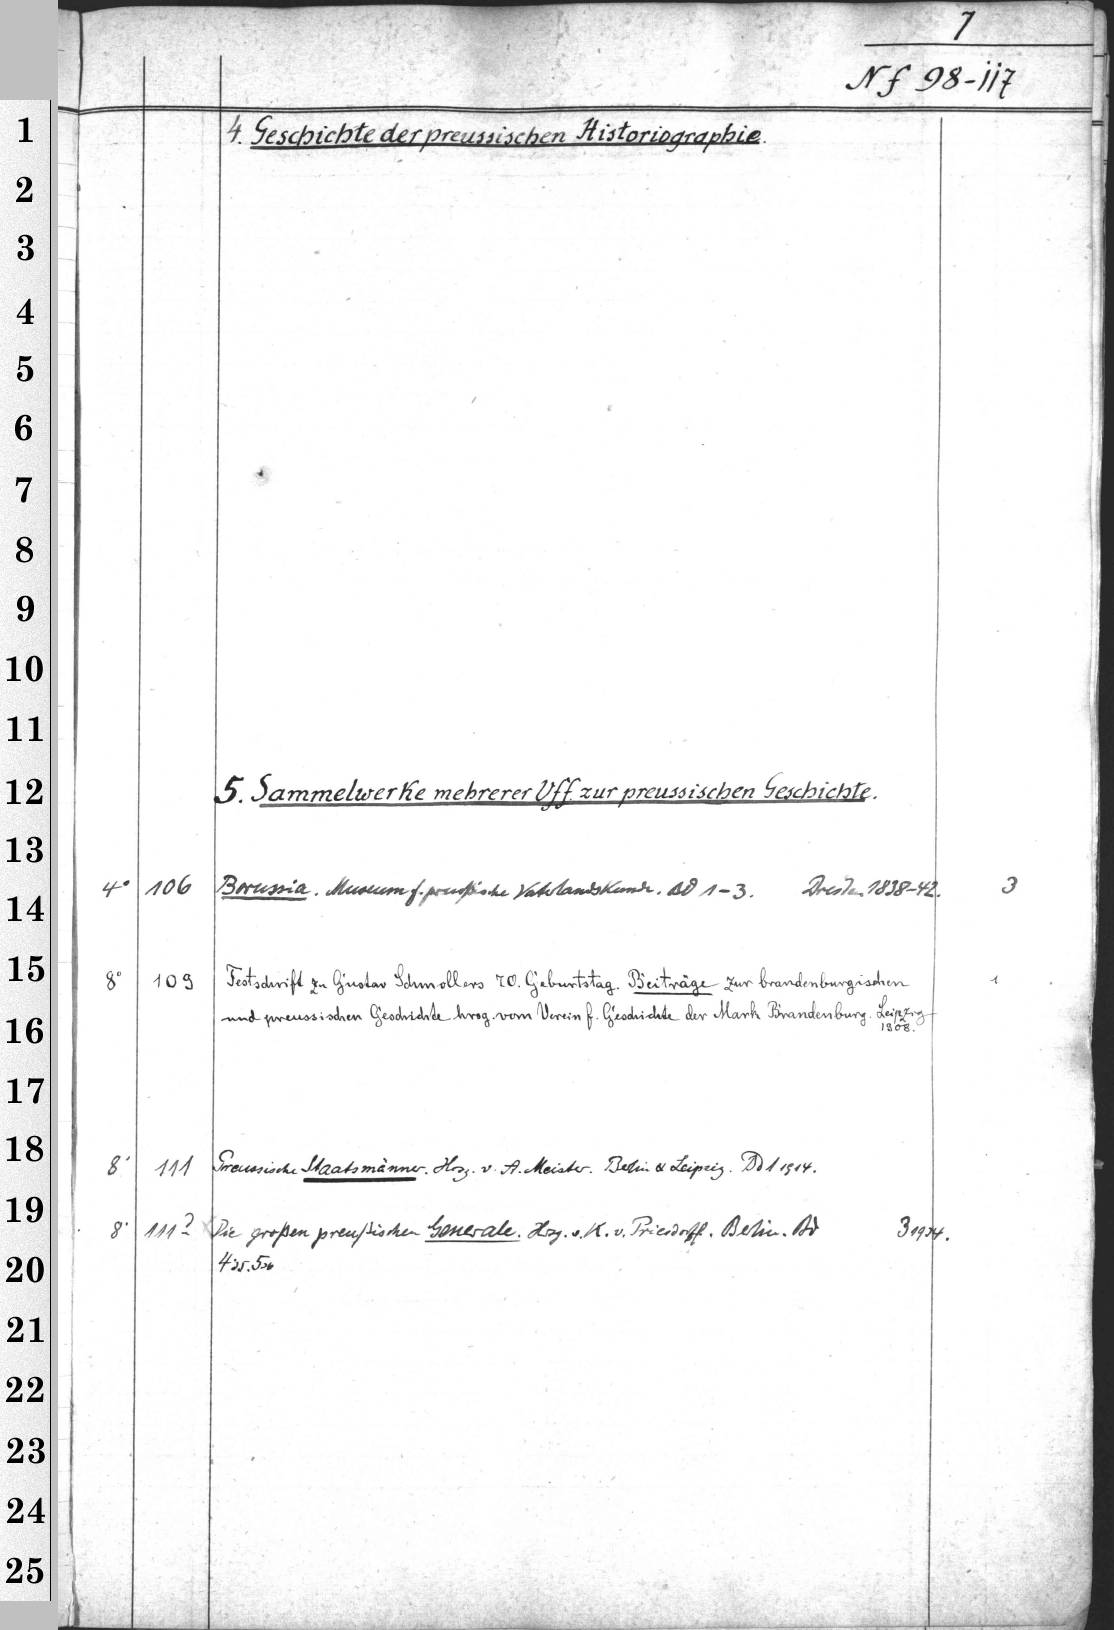 7
Nf 98-117
1
4. Geschichte der preussischen Historiographie.
2
3
4
5
6
7
8
9
10
11
12
5. Sammelwerke mehrerer Vff. zur preussischen Geschichte.
13
14
4° 106 Borussia. Museum f. preußische Vaterlandskunde. Bd 1-3. Dresden. 1838-42. 3
15
8° 109 Festschrift zu Gustav Schmollers 70. Geburtstag. Beiträge zur brandenburgischen 1
16
und preussischen Geschichte hrsg. vom Verein f. Geschichte der Mark Brandenburg. Leipzig
1908.
17
18
8° 111 Preussische Staatsmänner. Hrsg. v. A. Meister. Berlin & Leipzig. Bd 1 1914.
19
8° 111² Die großen preußischen Generale. Hrsg. v. K. v. Priesdorff. Berlin. Bd 3 1934.
20
4 35. 5 36
21
22
23
24
25